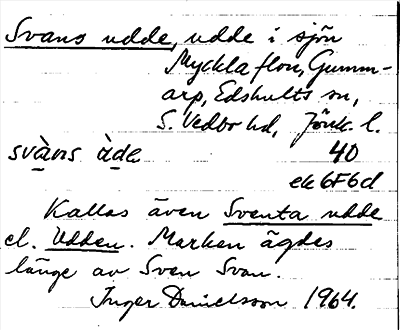 Svans udde, udde i sjön
Myckla flon, Gumm-
arp, Edshults sn,
S. Vedbo hd, Jönk. l.
svàns àde 40
ek 6F6d
Kallas även Sventa udde
el. Udden. Marken ägdes
länge av Sven Svan.
Inger Danielsson 1964.